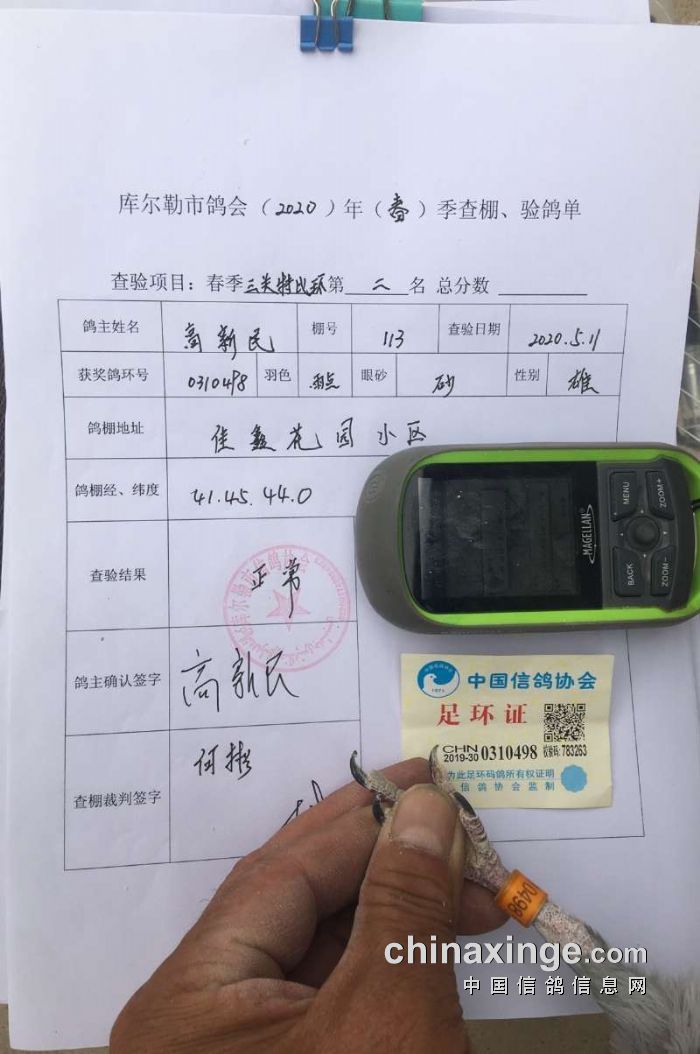 库尔勒市鸽会（2020）年（春）季查棚、验鸽单
查验项目：春季三关特比环第 二 名 总分数
鸽主姓名 高新民 棚号 113 查验日期 2020.5.11
获奖鸽环号 0310498 羽色 雨点 眼砂 砂 性别 雄
鸽棚地址 佳鑫花园小区
鸽棚经、纬度 41.45.44.0
查验结果 正常
鸽主确认签字 高新民
查棚裁判签字 何彬
MAGELLAN
MENU
ZOOM+
BACK
ZOOM-
中国信鸽协会
足环证
CHN
2019-30 0310498 校验码: 783263
为此足环码鸽所有权证明
信鸽协会监制
0498
chinaxinge.com
中国信鸽信息网